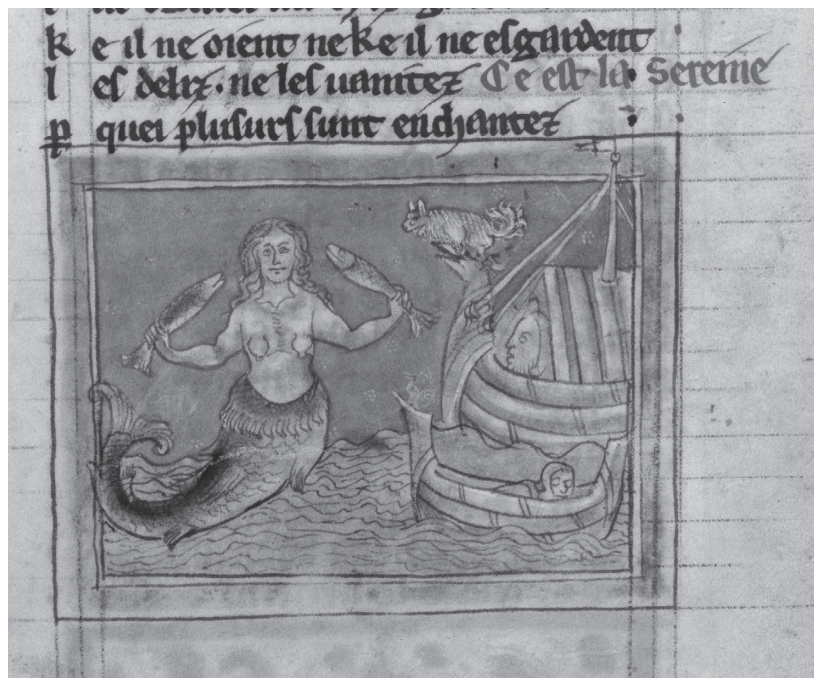 k e il ne oient ne ke il ne esgardent
l es deliz · ne les uanitez Ce est la Sereine
p quei plusurs sunt enchantez